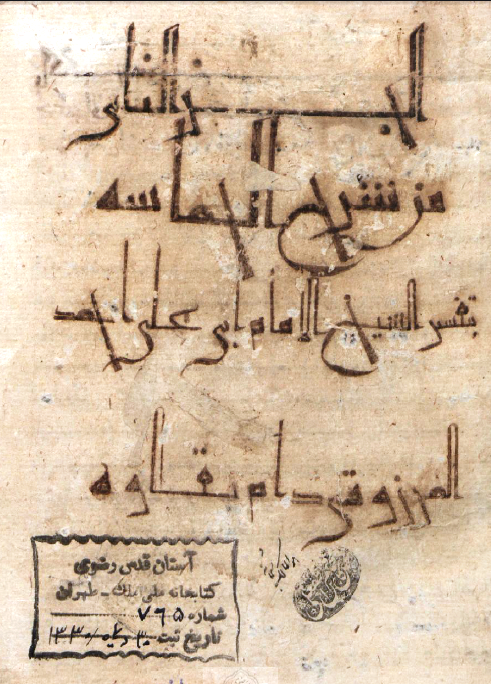 الجز الثانى
من شرح الحماسه
تفسير الشيخ الامام ابى على احمد
المرزوقى دام بقاوه
آستان قدس رضوی
کتابخانه ملی ملک - طهران
شماره ۷۶۵
تاریخ ثبت ۱۳۳۰